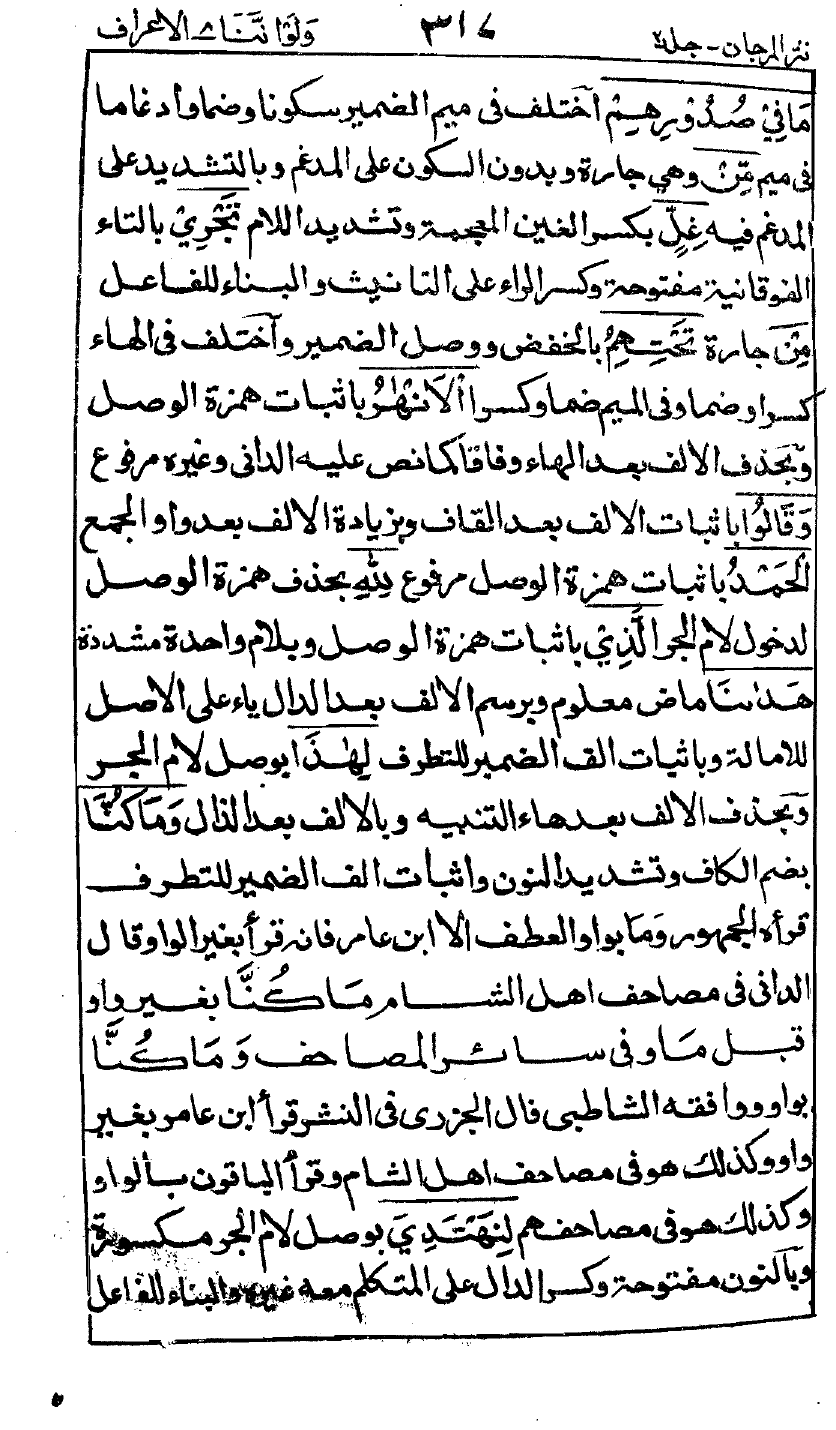 نثر المرجان - جلد ٢ ٣١٧ ولو اننا ـ الاعراف
مَا فِيْ صُدُوْرِهِمْ اختلف فى ميم الضمير سكونا وضما وأدغاما
فى ميم مِّنْ وهي جارة وبدون السكون على المدغم وبالتشديد على
المدغم فيه غِلٍّ بكسر الغين المعجمة وتشديد اللام تَجْرِيْ بالتاء
الفوقانية مفتوحة وكسر الراء على التانيث والبناء للفاعل
مِنْ جارة تَحْتِهِمُ بالخفض ووصل الضمير واختلف فى الهاء
كسرا وضما وفى الميم ضما وكسرا اَلْاَنْهٰرُ باثبات همزة الوصل
وبحذف الالف بعد الهاء وفاقا كما نص عليه الدانى وغيره مرفوع
وَقَالُوا باثبات الالف بعد القاف وبزيادة الالف بعد واو الجمع
الْحَمْدُ باثبات همزة الوصل مرفوع لِلّٰهِ بحذف همزة الوصل
لدخول لام الجر الَّذِيْ باثبات همزة الوصل وبلام واحدة مشددة
هَدٰىنَا ماض معلوم وبرسم الالف بعد الدال ياء على الاصل
للامالة وباثبات الف الضمير للتطرف لِهٰذَا بوصل لام الجر
وبحذف الالف بعد هاء التنبيه وبالالف بعد الذال وَمَا كُنَّا
بضم الكاف وتشديد النون واثبات الف الضمير للتطرف
قرأه الجمهور وَمَا بواو العطف الا ابن عامر فانه قرأ بغير الواو قال
الدانى فى مصاحف اهل الشام مَا كُنَّا بغير واو
قبل مَا وفى سائر المصاحف وَمَا كُنَّا
بواو ووافقه الشاطبى قال الجزرى فى النشر قرأ ابن عامر بغير
واو وكذلك هو فى مصاحف اهل الشام وقرأ الباقون بالواو
وكذلك هو فى مصاحفهم لِنَهْتَدِيَ بوصل لام الجر مكسورة
وبالنون مفتوحة وكسر الدال على المتكلم معه غيره والبناء للفاعل